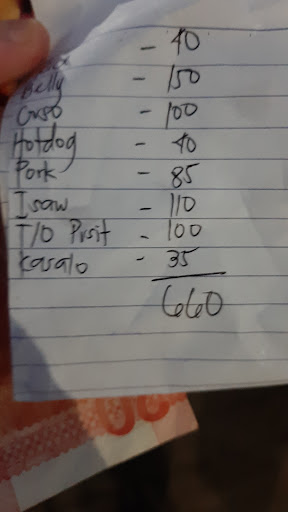 - 40
Belly - 150
Caso - 100
Hotdog - 40
Pork - 85
Isaw - 110
T/O Pusit - 100
Kasalo - 35
660